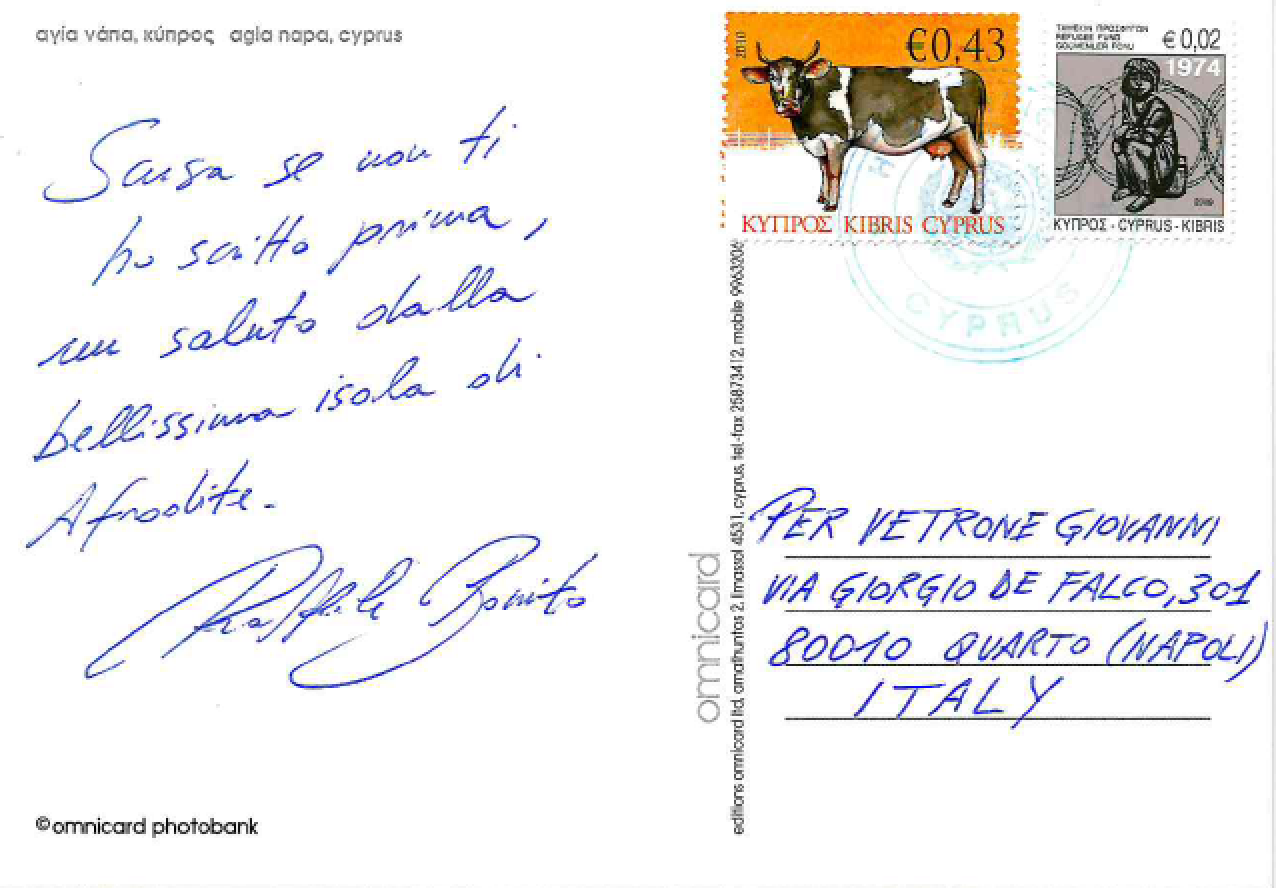 αγία νάπα, κύπρος agia napa, cyprus
Scusa se non ti
ho scritto prima,
un saluto dalla
bellissima isola di
Afrodite.
Raffaele Bonito
©omnicard photobank
omnicard
editions omnicard ltd, amathuntos 2, limassol 4531, cyprus, tel-fax 25873412, mobile 99633206
2010
€0,43
ΚΥΠΡΟΣ KIBRIS CYPRUS
ΤΑΜΕΙΟΝ ΠΡΟΣΦΥΓΩΝ
REFUGEE FUND
GÖÇMENLER FONU
€0,02
1974
ΚΥΠΡΟΣ - CYPRUS - KIBRIS
CYPRUS
PER VETRONE GIOVANNI
VIA GIORGIO DE FALCO, 301
80010 QUARTO (NAPOLI)
ITALY